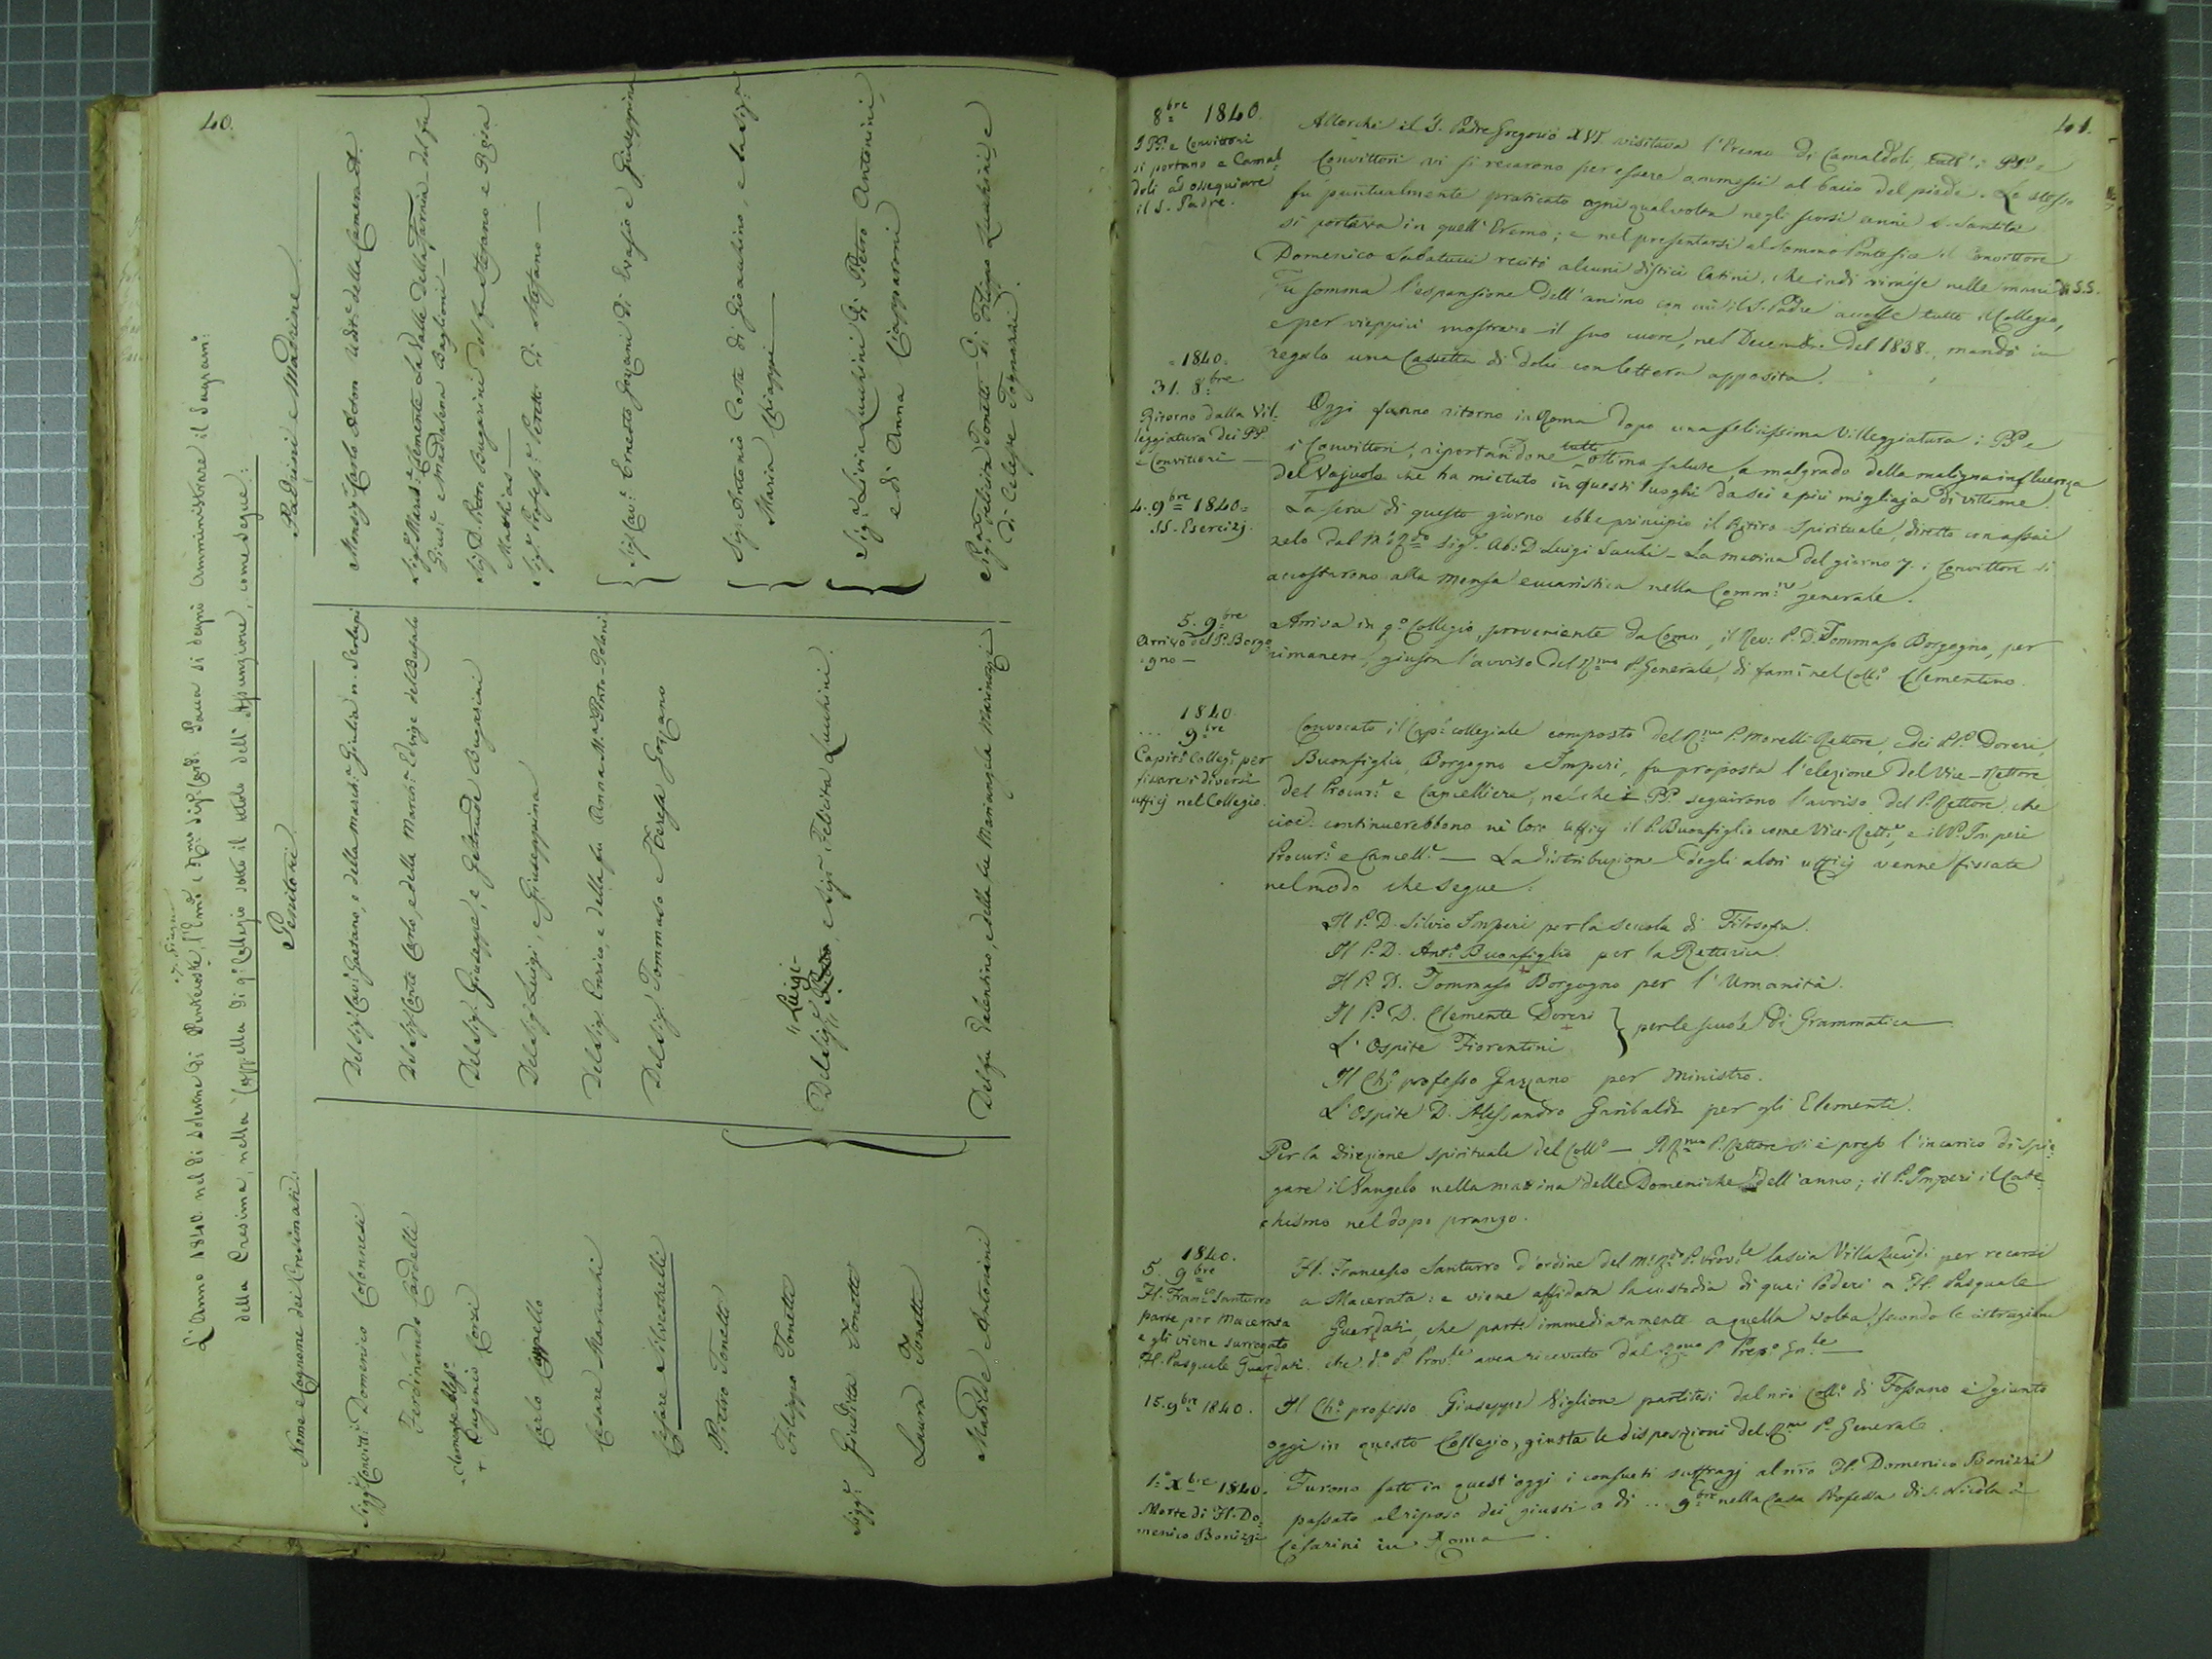 40.
7. Giugno
L'Anno 1840. nel dì solenne di Pentecoste, l'Emo e Rmo Sigr Card. si degnò amministrare il Sagram:
della Cresima, nella Cappella di qo Collegio sotto il titolo dell'Assunzione, come segue:
Nome e Cognome dei Cresimati.
Genitori.
Padrini e Madrine.
Sigg.i Convitti Domenico Colonnesi
Del Sig.r Cav. Gaetano, e della March.a Giulia n. Serlupi
Monsigr Carlo Acton Udit.e della Camera
Ferdinando Cardelli
Del Sigr Conte Carlo, e della March.a Edvige del Bufalo
Sigr March.e Clemente La Valle Della Fargna del fu
Gius.e e Maddalena Baglioni —
+ Eugenio Corsi
Del Sigr Giuseppe, e Geltrude Bugarini
Sig D. Pietro Bugarini del fu Stefano e Rosa
Matthias —
Carlo Cappello
Del Sigr Luigi, e Giuseppina
Sigr Profess.r Peretti di Stefano —
Cesare Marucchi
Del Sigr Enrico, e della fu Anna M.a Porto-Poloni
Sigr Cav.e Ernesto Gozzani di Evasio e Giuseppina
Cesare Silvestrelli
Del Sigr Tommaso e Teresa Gozzano
Sigr Antonio Costa di Gioachino, e la Sigra
Maria Chiappi —
Pietro Tonetti
Filippo Tonetti
Sigg.e Giuditta Tonetti
Laura Tonetti
"Luigi"
Del Sigr, e Sigra Felicita Lucchini.
Sig.a Livia Lucchini di Pietro Antonini,
e di Anna Ciapparoni
Matilde Antonini
Del fu Valentino, e della fu Mariangela Marinozzi
Sig.a Felicita Tonetti di Filippo Lucchini, e
di Celeste Tognardi.
41.
8bre 1840.
I PP. e Convittori
si portano a Camal-
doli ad ossequiare
il S. Padre.
Allorchè il S. Padre Gregorio XVI. visitava l'Eremo di Camaldoli, tutt'i PP. e
Convittori vi si recarono per essere ammessi al bacio del piede. Lo stesso
fu puntualmente praticato ogni qualvolta negli scorsi anni S. Santità
si portava in quell'Eremo; e nel presentarsi al Sommo Pontefice il Convittore
Domenico Sabatucci recitò alcuni distici latini, che indi rimise nelle mani di S.S.
Fu somma l'espansione dell'animo con cui il S. Padre accolse tutto il Collegio,
e per vieppiù mostrare il suo cuore, nel Decembre del 1838. mandò in
regalo una Cassetta di dolci con lettera apposita.
1840.
31. 8bre
Ritorno dalla Vil-
leggiatura dei PP.
e Convittori —
Oggi fanno ritorno in Roma dopo una felicissima Villeggiatura i PP. e
i Convittori, riportandone tutti ottima salute, a malgrado della maligna influenza
del Vajuolo che ha mietuto in questi luoghi da sei e più migliaja di vittime.
4. 9bre 1840.
SS. Esercizj.
La sera di questo giorno ebbe principio il Ritiro spirituale, diretto con assai
zelo dal M. Rdo Sigr. Ab: D. Luigi — La mattina del giorno 7. i Convittori si
accostarono alla mensa eucaristica nella Comm.ne generale.
5. 9bre
Arrivo del P. Borgo-
gno —
Arriva in q.o Collegio, proveniente da Como, il Rev: P. D. Tommaso Borgogno, per
rimanere, giusta l'avviso del Rmo P. Generale, di fam.a nel Coll.o Clementino.
1840.
... 9bre
Capit.o Colleg.e per
fissare i diversi
ufficj nel Collegio.
Convocato il Cap.o collegiale composto del Rmo P. Morelli Rettore, e dei PP. Doreri
Buonfiglio, Borgogno e Imperi, fu proposta l'elezione del Vice-Rettore
del Procur.e e Cancelliere, nel che i PP. seguirono l'avviso del P. Rettore, che
cioè continuerebbono nè loro Ufficj il P. Buonfiglio come Vice-Rett.e, e il P. Imperi
Procur.e e Cancell.e — La distribuzione degli altri ufficj venne fissata
nel modo che segue:
Il P. D. Silvio Imperi per la scuola di Filosofia.
Il P. D. Ant.o Buonfiglio per la Rettorica.
Il P. D. Tommaso Borgogno per l'Umanità.
Il P. D. Clemente Doreri
L'Ospite Fiorentini
} per le scuole di Grammatica —
Il Ch.o professo Gazzano per Ministro.
L'Ospite D. Alessandro Garibaldi per gli Elementi.
Per la Direzione spirituale del Coll.o — Il Rmo P. Rettore si è preso l'incarico di spie-
gare il Vangelo nella mattina delle Domeniche dell'anno; il P. Imperi il Cate-
chismo nel dopo pranzo.
1840.
5. 9bre
H. Franc.o Santurro
parte per Macerata
e gli viene surrogato
H. Pasquale Guardati.
H. Francesco Santurro d'ordine del M. R. P. Prov.le lascia Villa Lucidi per recarsi
a Macerata: e viene affidata la custodia di quei Poderi a H. Pasquale
Guardati, che parte immediatamente a quella volta, secondo le istruzioni
che d.o P. Prov.le avea ricevuto dal Rmo P. Prep.o Gn.le —
15. 9bre 1840.
Il Ch.o professo Giuseppe Viglione partitosi dal nro Coll.o di Fossano è giunto
oggi in questo Collegio, giusta le disposizioni del Rmo P. Generale.
1.o Xbre 1840.
Morte di H. Do-
menico Bonizzi
Furono fatti in quest'oggi i consueti suffragj al nro H. Domenico Bonizzi
passato al riposo dei giusti a dì .. 9bre nella Casa Professa di S. Nicola a'
Cesarini in Roma —.